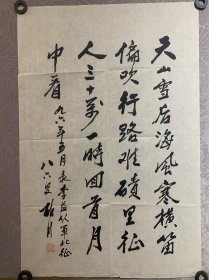 天山雪后海風寒横笛
偏吹行路难磧里征
人三十萬一時回首月
中看 九六年五月录李益从軍北征
八六叟